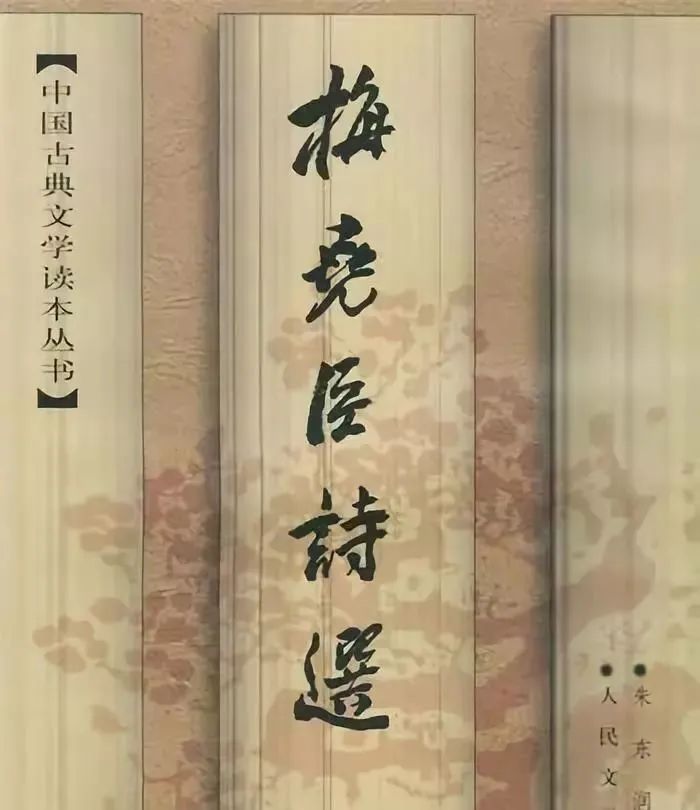 【中国古典文学读本丛书】
梅堯臣詩選
●朱东润
●人民文